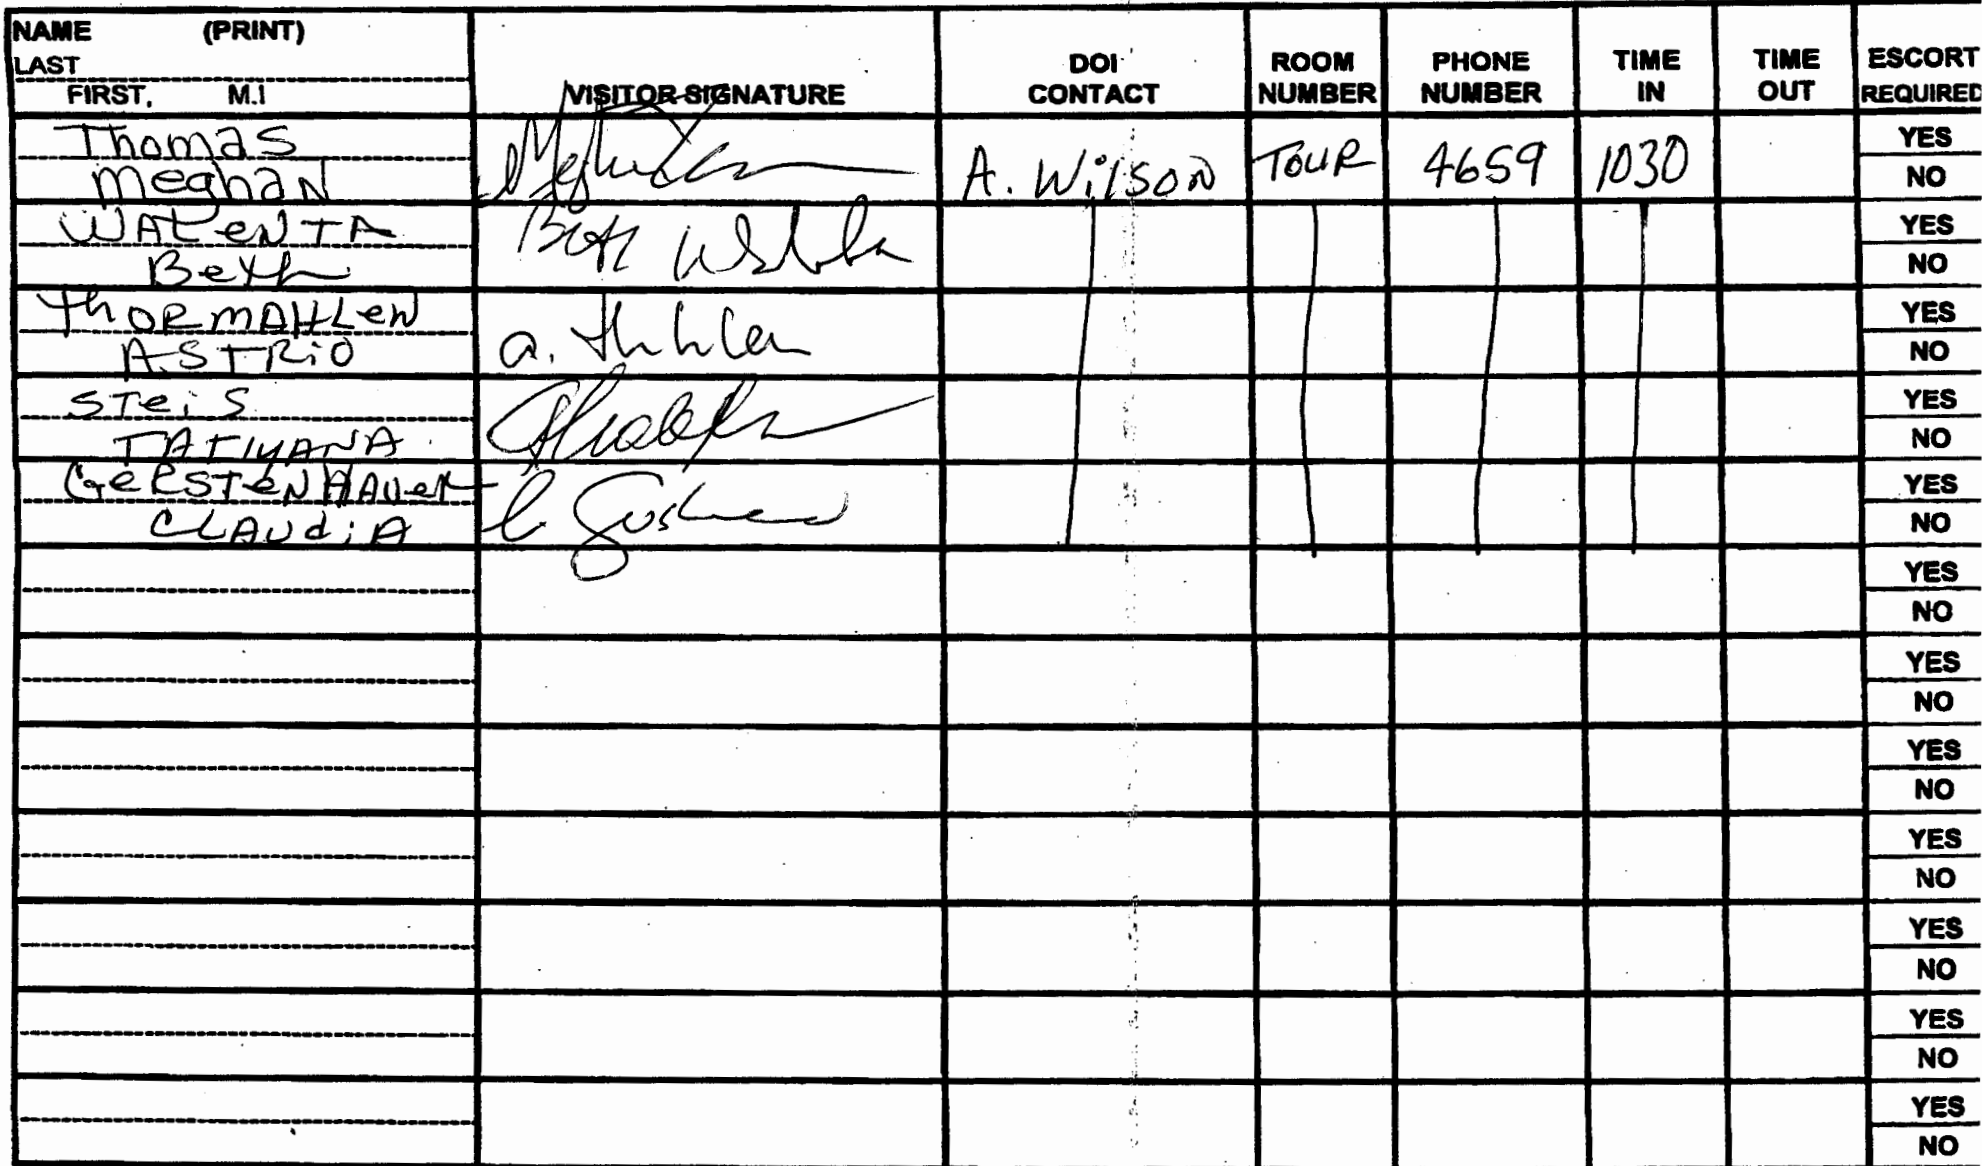 NAME (PRINT)
LAST
FIRST, M.I
VISITOR SIGNATURE
DOI CONTACT
ROOM NUMBER
PHONE NUMBER
TIME IN
TIME OUT
ESCORT REQUIRED
Thomas
Meghan
A. Wilson TOUR 4659 1030
YES
NO
WATENTA
Beth
Beth
YES
NO
ThORMAHLEN
ASTRID
a.
YES
NO
STeiS
TATIYANA
YES
NO
GeRSTeNHAUer
CLAUdiA
YES
NO
YES
NO
YES
NO
YES
NO
YES
NO
YES
NO
YES
NO
YES
NO